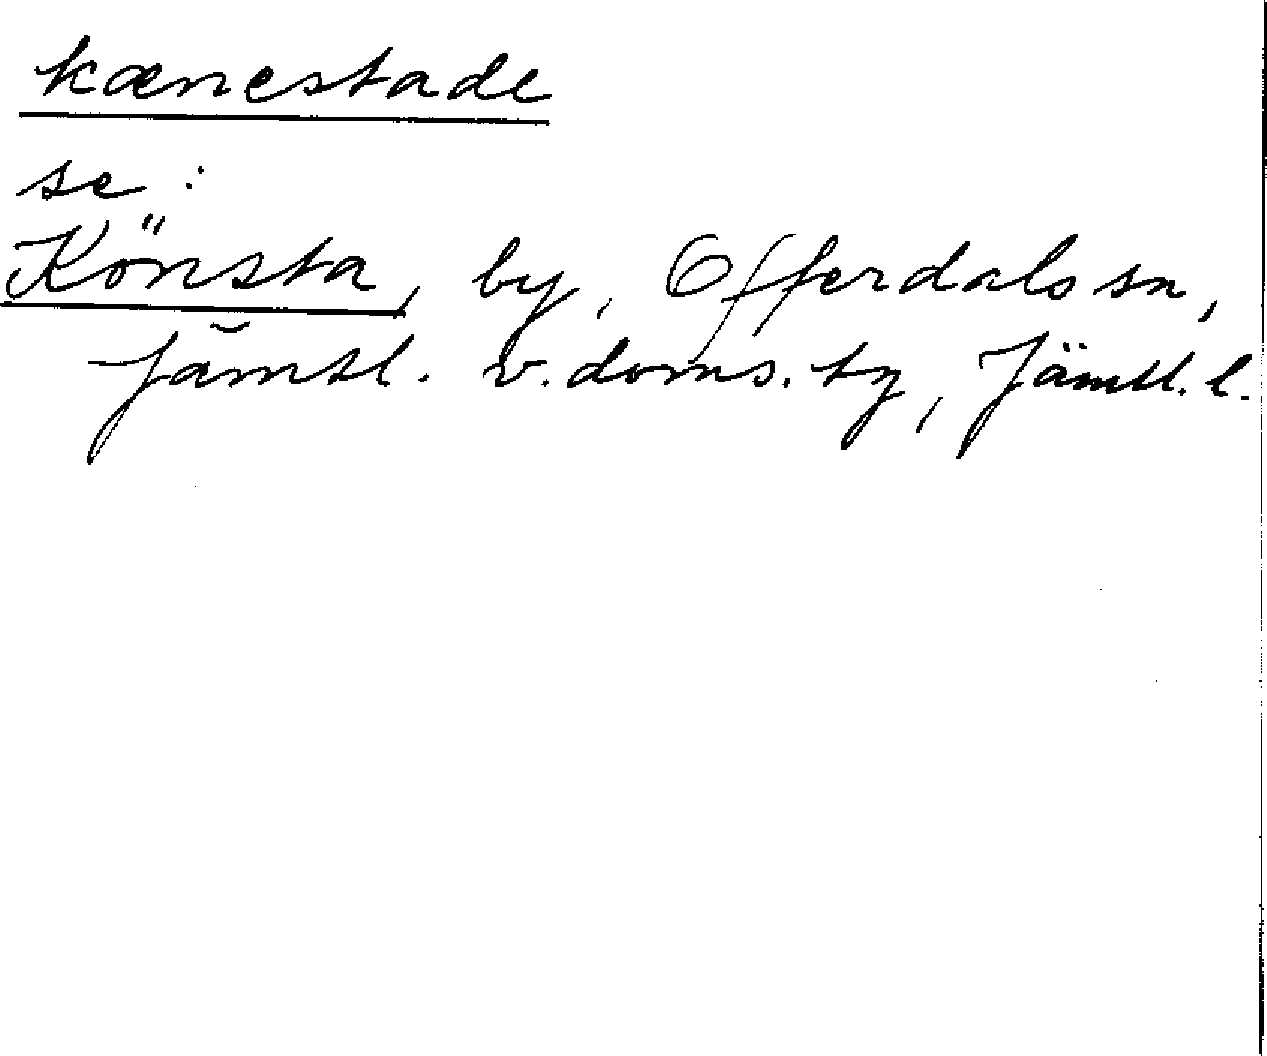 kænestade
se:
Könsta, by, Offerdals sn,
Jämtl. v. doms. tg, Jämtl. l.